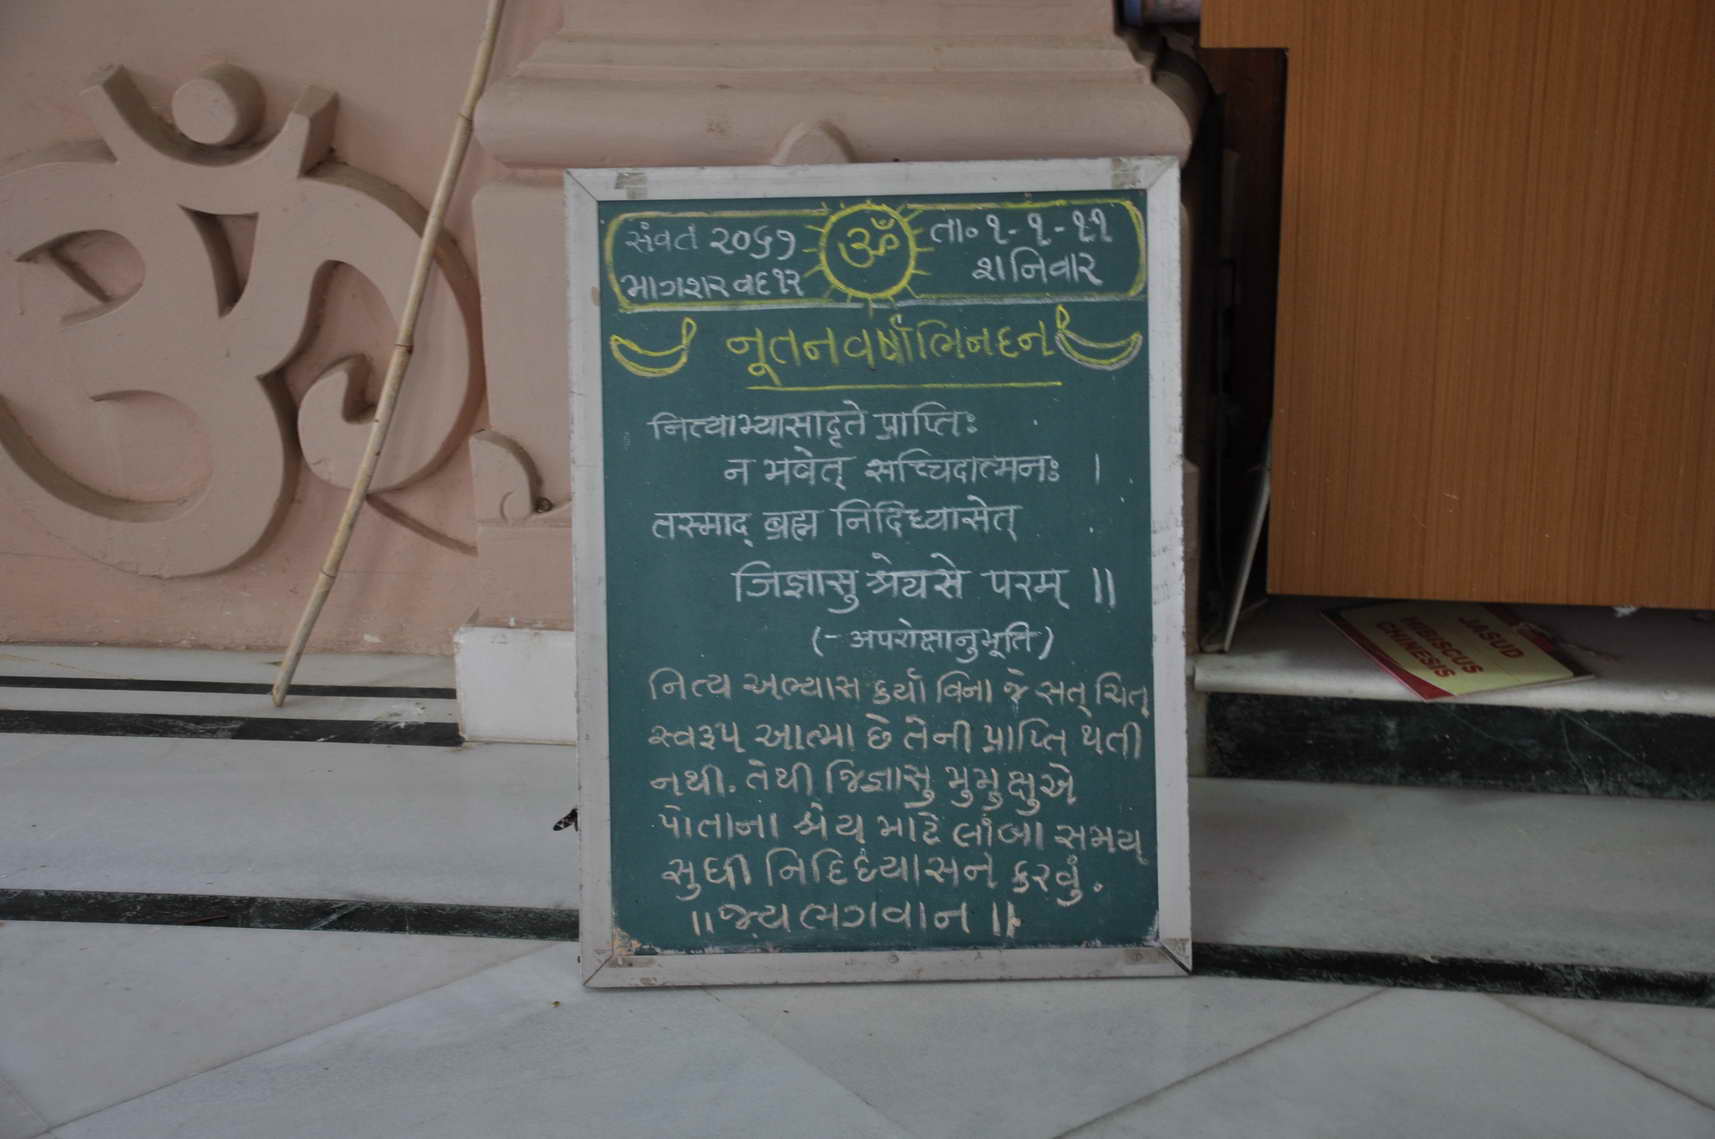 સંવત ૨૦૬૭
માગશર વદ ૧૨
ॐ
તા૦ ૧-૧-૧૧
શનિવાર
નૂતનવર્ષાભિનદન
नित्याभ्यासादृते प्राप्तिः
न भवेत् सच्चिदात्मनः ।
तस्माद् ब्रह्म निदिध्यासेत्
जिज्ञासु श्रेयसे परम् ॥
(- अपरोक्षानुभूति)
નિત્ય અભ્યાસ કર્યા વિના જે સત્ ચિત્
સ્વરૂપ આત્મા છે તેની પ્રાપ્તિ થતી
નથી. તેથી જિજ્ઞાસુ મુમુક્ષુએ
પોતાના શ્રેય માટે લાંબા સમય
સુધી નિદિધ્યાસન કરવું.
॥ જય ભગવાન ॥
JASUD
HIBISCUS
CHINESIS